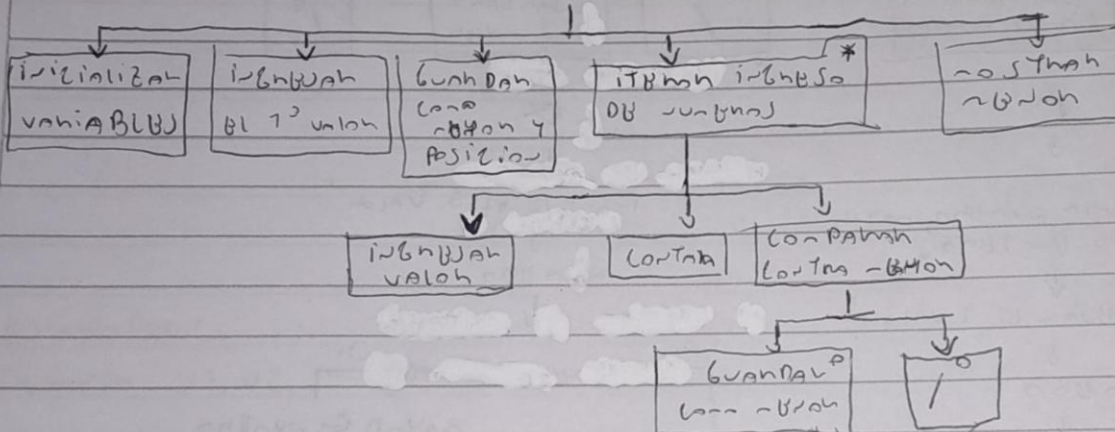 iNiCiALiZAR
VARiABLES
iNGRESAR
EL 1º VALOR
GUARDAR
COMO
MENOR Y
POSiCiON
iTERAR iNGRESO *
DE NUMEROS
MOSTRAR
MENOR
iNGRESAR
VALOR
CONTAR
COMPARAR
CONTRA MENOR
GUARDAR º
COMO MENOR
/ º